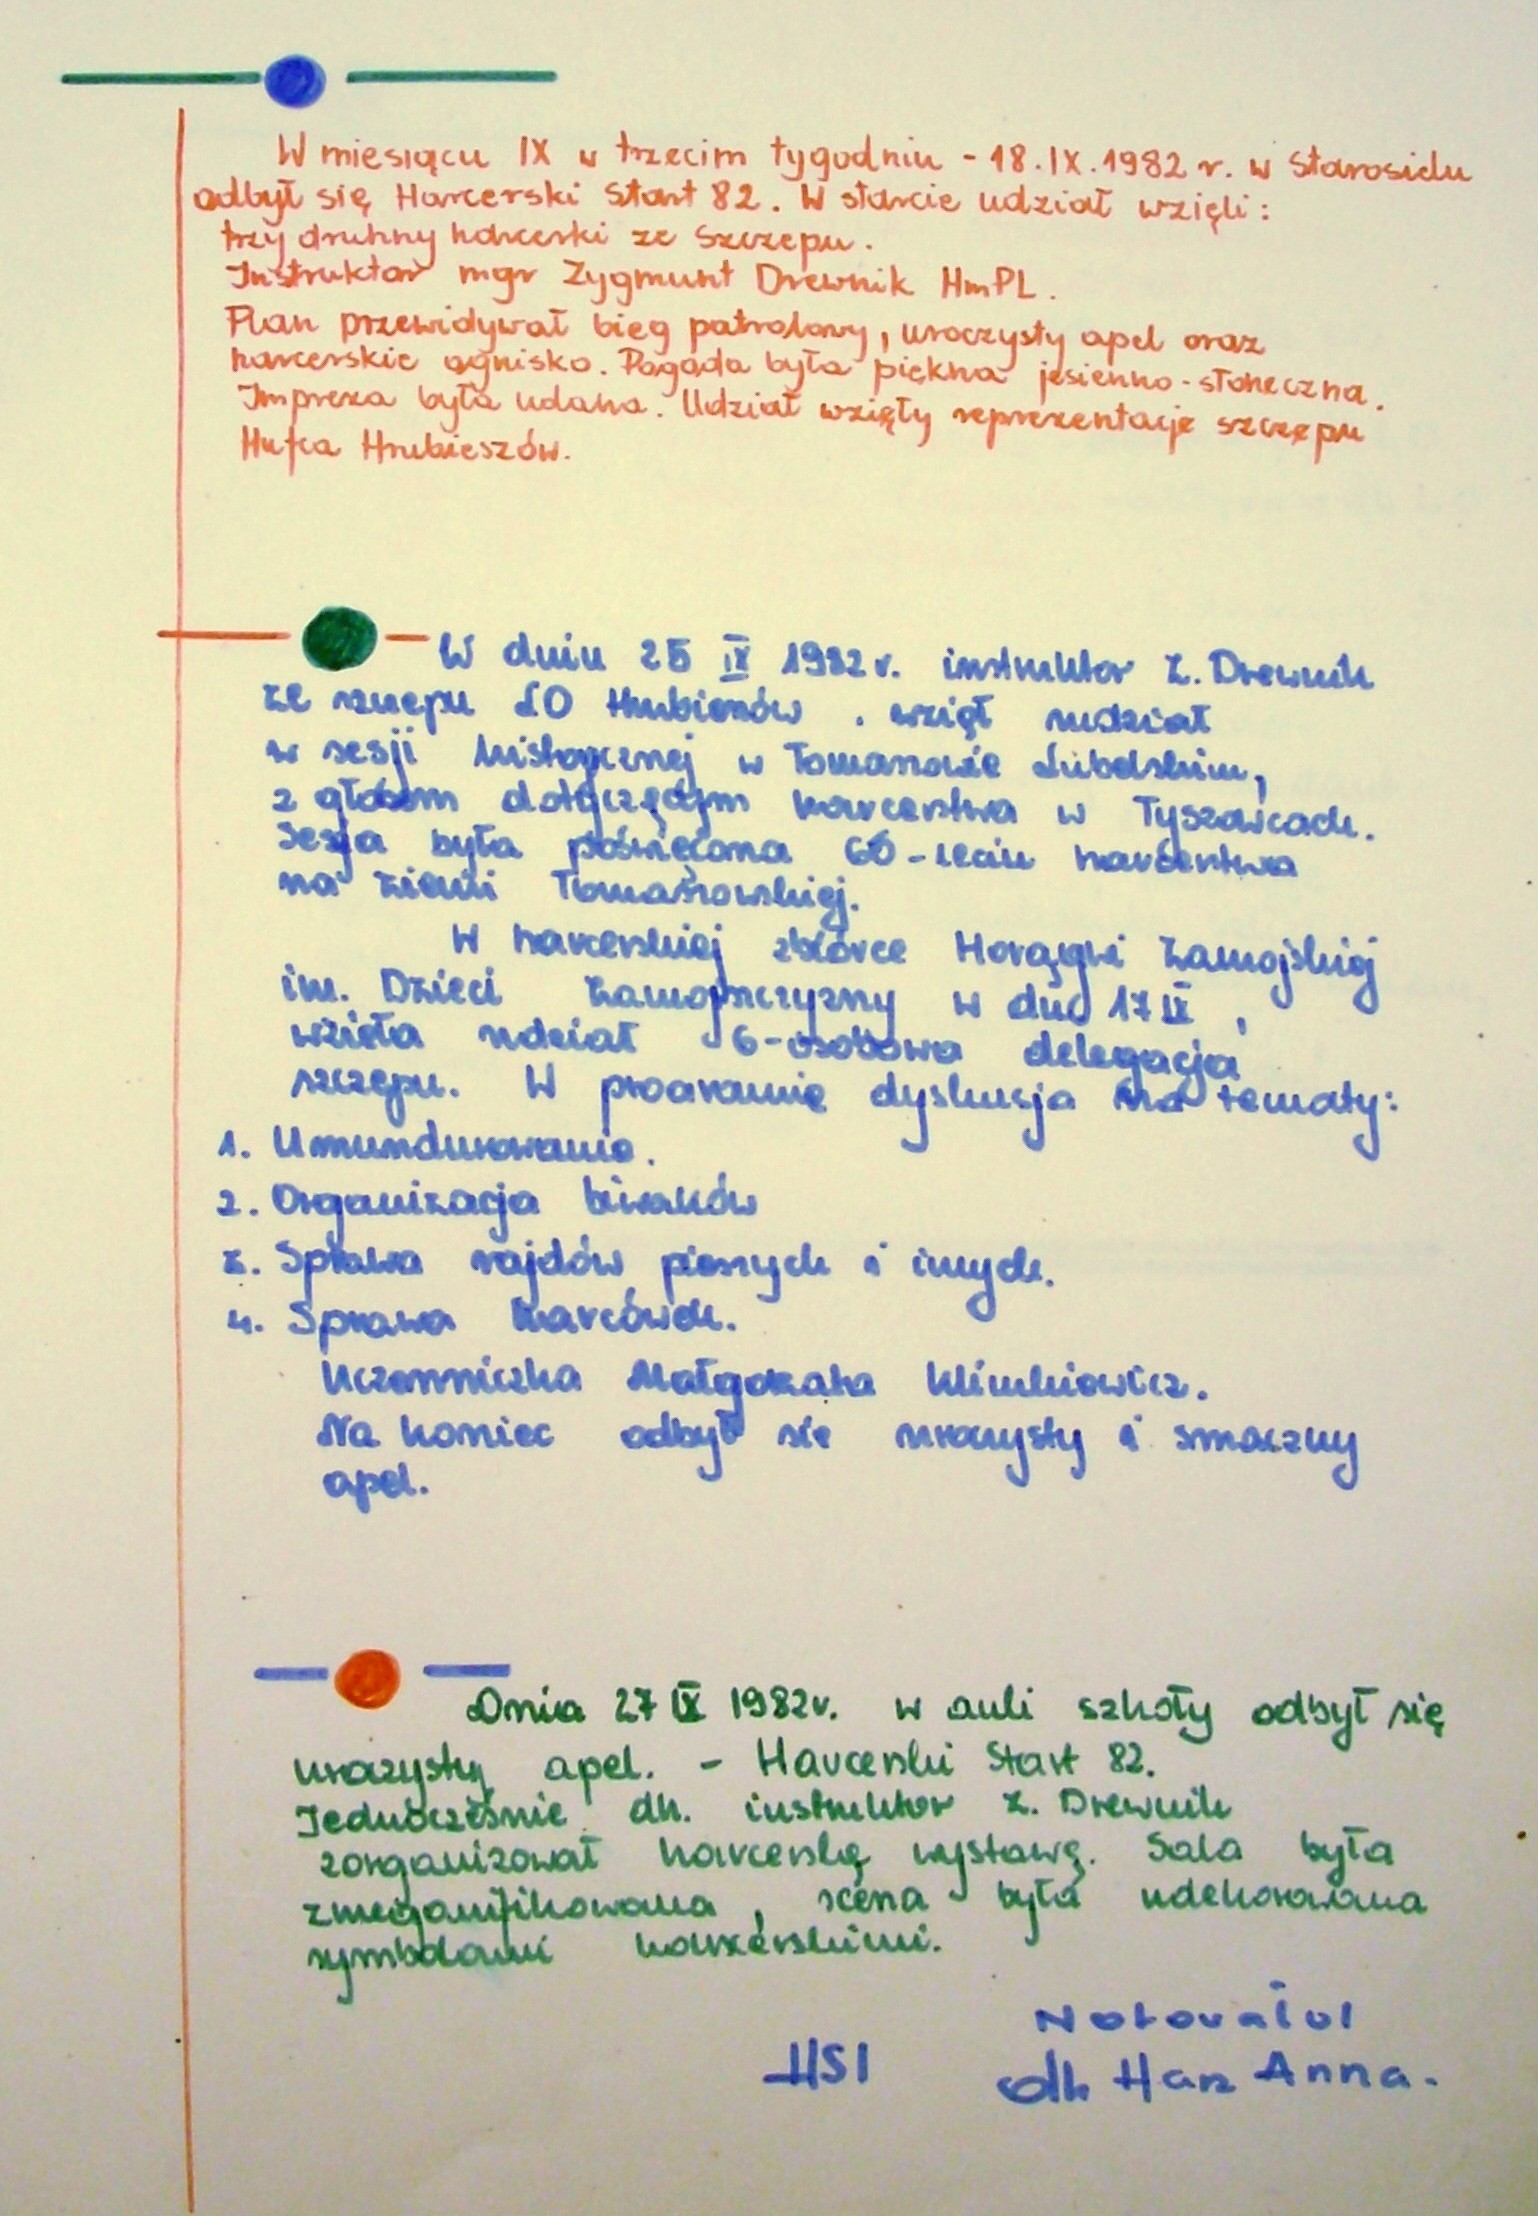 W miesiącu IX w trzecim tygodniu - 18.IX.1982 r. w Starosielu
odbył się Harcerski Start 82. W starcie udział wzięli:
trzy druhny harcerki ze Szczepu.
Instruktor mgr Zygmunt Drewnik HmPL.
Plan przewidywał bieg patrolowy, uroczysty apel oraz
harcerskie ognisko. Pogoda była piękna jesienno-słoneczna.
Impreza była udana. Udział wzięły reprezentacje szczepu
Hufca Hrubieszów.
W dniu 25 IX 1982 r. instruktor Z. Drewnik
ze szczepu LO Hrubieszów . wziął udział
w sesji histoycznej w Tomaszowie Lubelskim,
z głosem dotyczącym harcerstwa w Tyszowcach.
Sesja była poświęcona 60-leciu harcerstwa
na ziemi Tomaszowskiej.
W harcerskiej zbiórce Horągwi Zamojskiej
im. Dzieci Zamojszczyzny w dniu 17 IX ,
wzięła udział 6-osobowa delegacja
szczepu. W programie dyskusja na tematy:
1. Umundurowanie.
2. Organizacja biwaków
3. Sprawa rajdów pieszych i innych.
4. Sprawa harcówek.
Uczenniczka Małgorzata Klimkiewicz.
Na koniec odbył się uroczysty i smaczny
apel.
Dnia 27 IX 1982 r. w auli szkoły odbył się
uroczysty apel. - Harcerski Start 82.
Jednocześnie dh. instruktor Z. Drewnik
zorganizował harcerską wystawę. Sala była
zmeganifikowana , scena była udekorowana
symbolami harcerskimi.
HSI
Notował
dh Harz Anna.